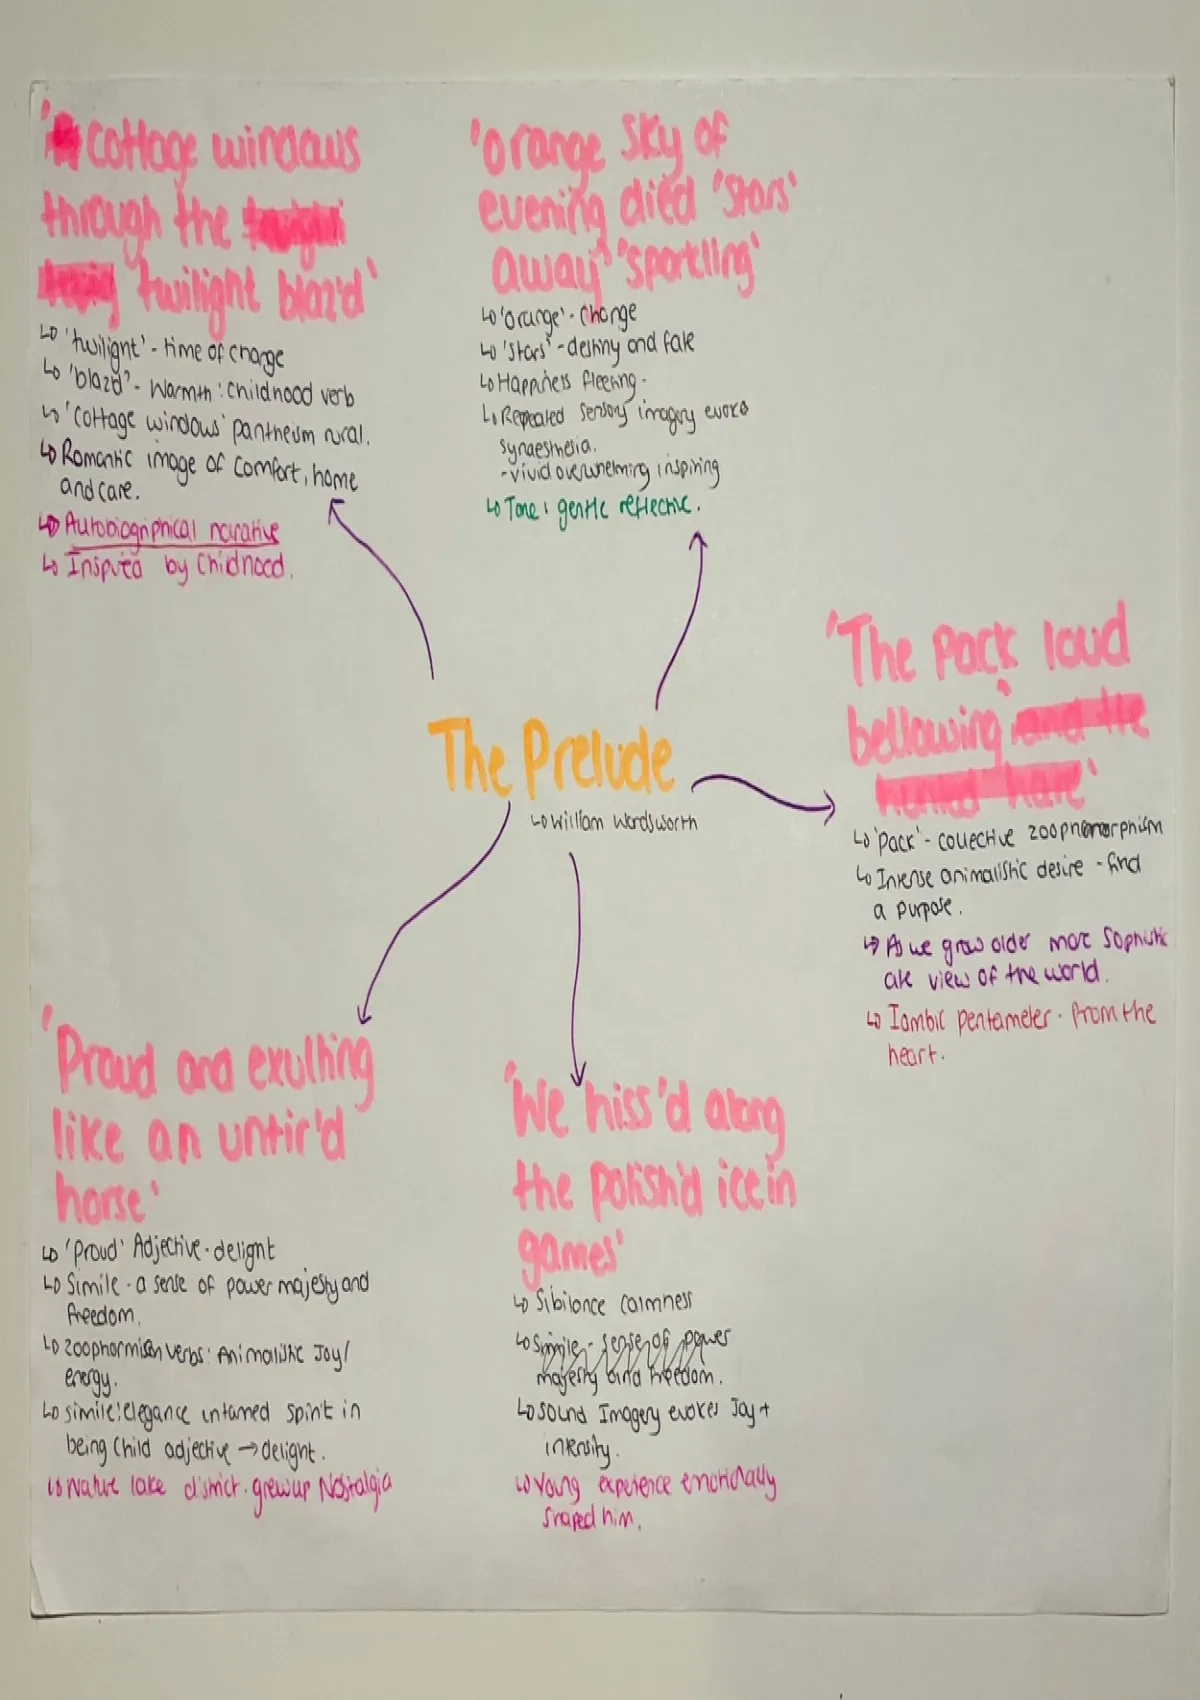 'Cottage windows
through the
twilight blaz'd'
↳ 'twilight' - time of change
↳ 'blazd' - Warmth : Childhood verb
↳ 'Cottage windows' pantheism rural.
↳ Romantic image of comfort, home
and care.
↳ Autobiographical narrative
↳ Inspired by Childhood.
'orange sky of
evening died 'stars'
away' 'sparkling'
↳ 'orange' - change
↳ 'Stars' - destiny and fate
↳ Happiness fleeting -
↳ Repeated sensory imagery evoke
synaesthesia.
- vivid overwhelming inspiring
↳ Tone : gentle reflective.
'The Pack loud
bellowing'
↳ 'pack' - collective zoophomorphism
↳ Intense animalistic desire - find
a purpose.
↳ As we grow older more Sophistic
ate view of the world.
↳ Iambic pentameter - from the
heart.
The Prelude
↳ William Wordsworth
'Proud and exulting
like an untir'd
horse'
↳ 'Proud' Adjective - delight
↳ Simile - a sense of power majesty and
freedom.
↳ zoophormism verbs : Animalistic Joy/
energy.
↳ simile : elegance untamed spirit in
being Child adjective → delight.
↳ Nature lake district - grew up Nostalgia
'We hiss'd along
the polish'd ice in
games'
↳ Sibilance calmness
↳ Simile - sense of power
majesty and freedom.
↳ Sound Imagery evokes Joy +
intensity.
↳ Young experience emotionally
shaped him.